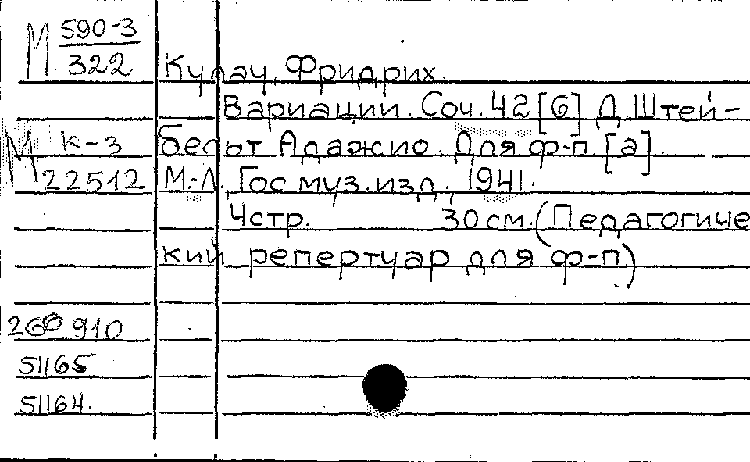 М 590-3
322
Кулау, Фридрих.
Вариации. Соч. 42 [G] Д. Штей-
М к-3
бельт Адажио. Для ф-п [а].
22512
М.-Л. Гос муз. изд., 1941.
4стр. 30 см. (Педагогиче
кий репертуар для ф-п)
910
51165
51164.